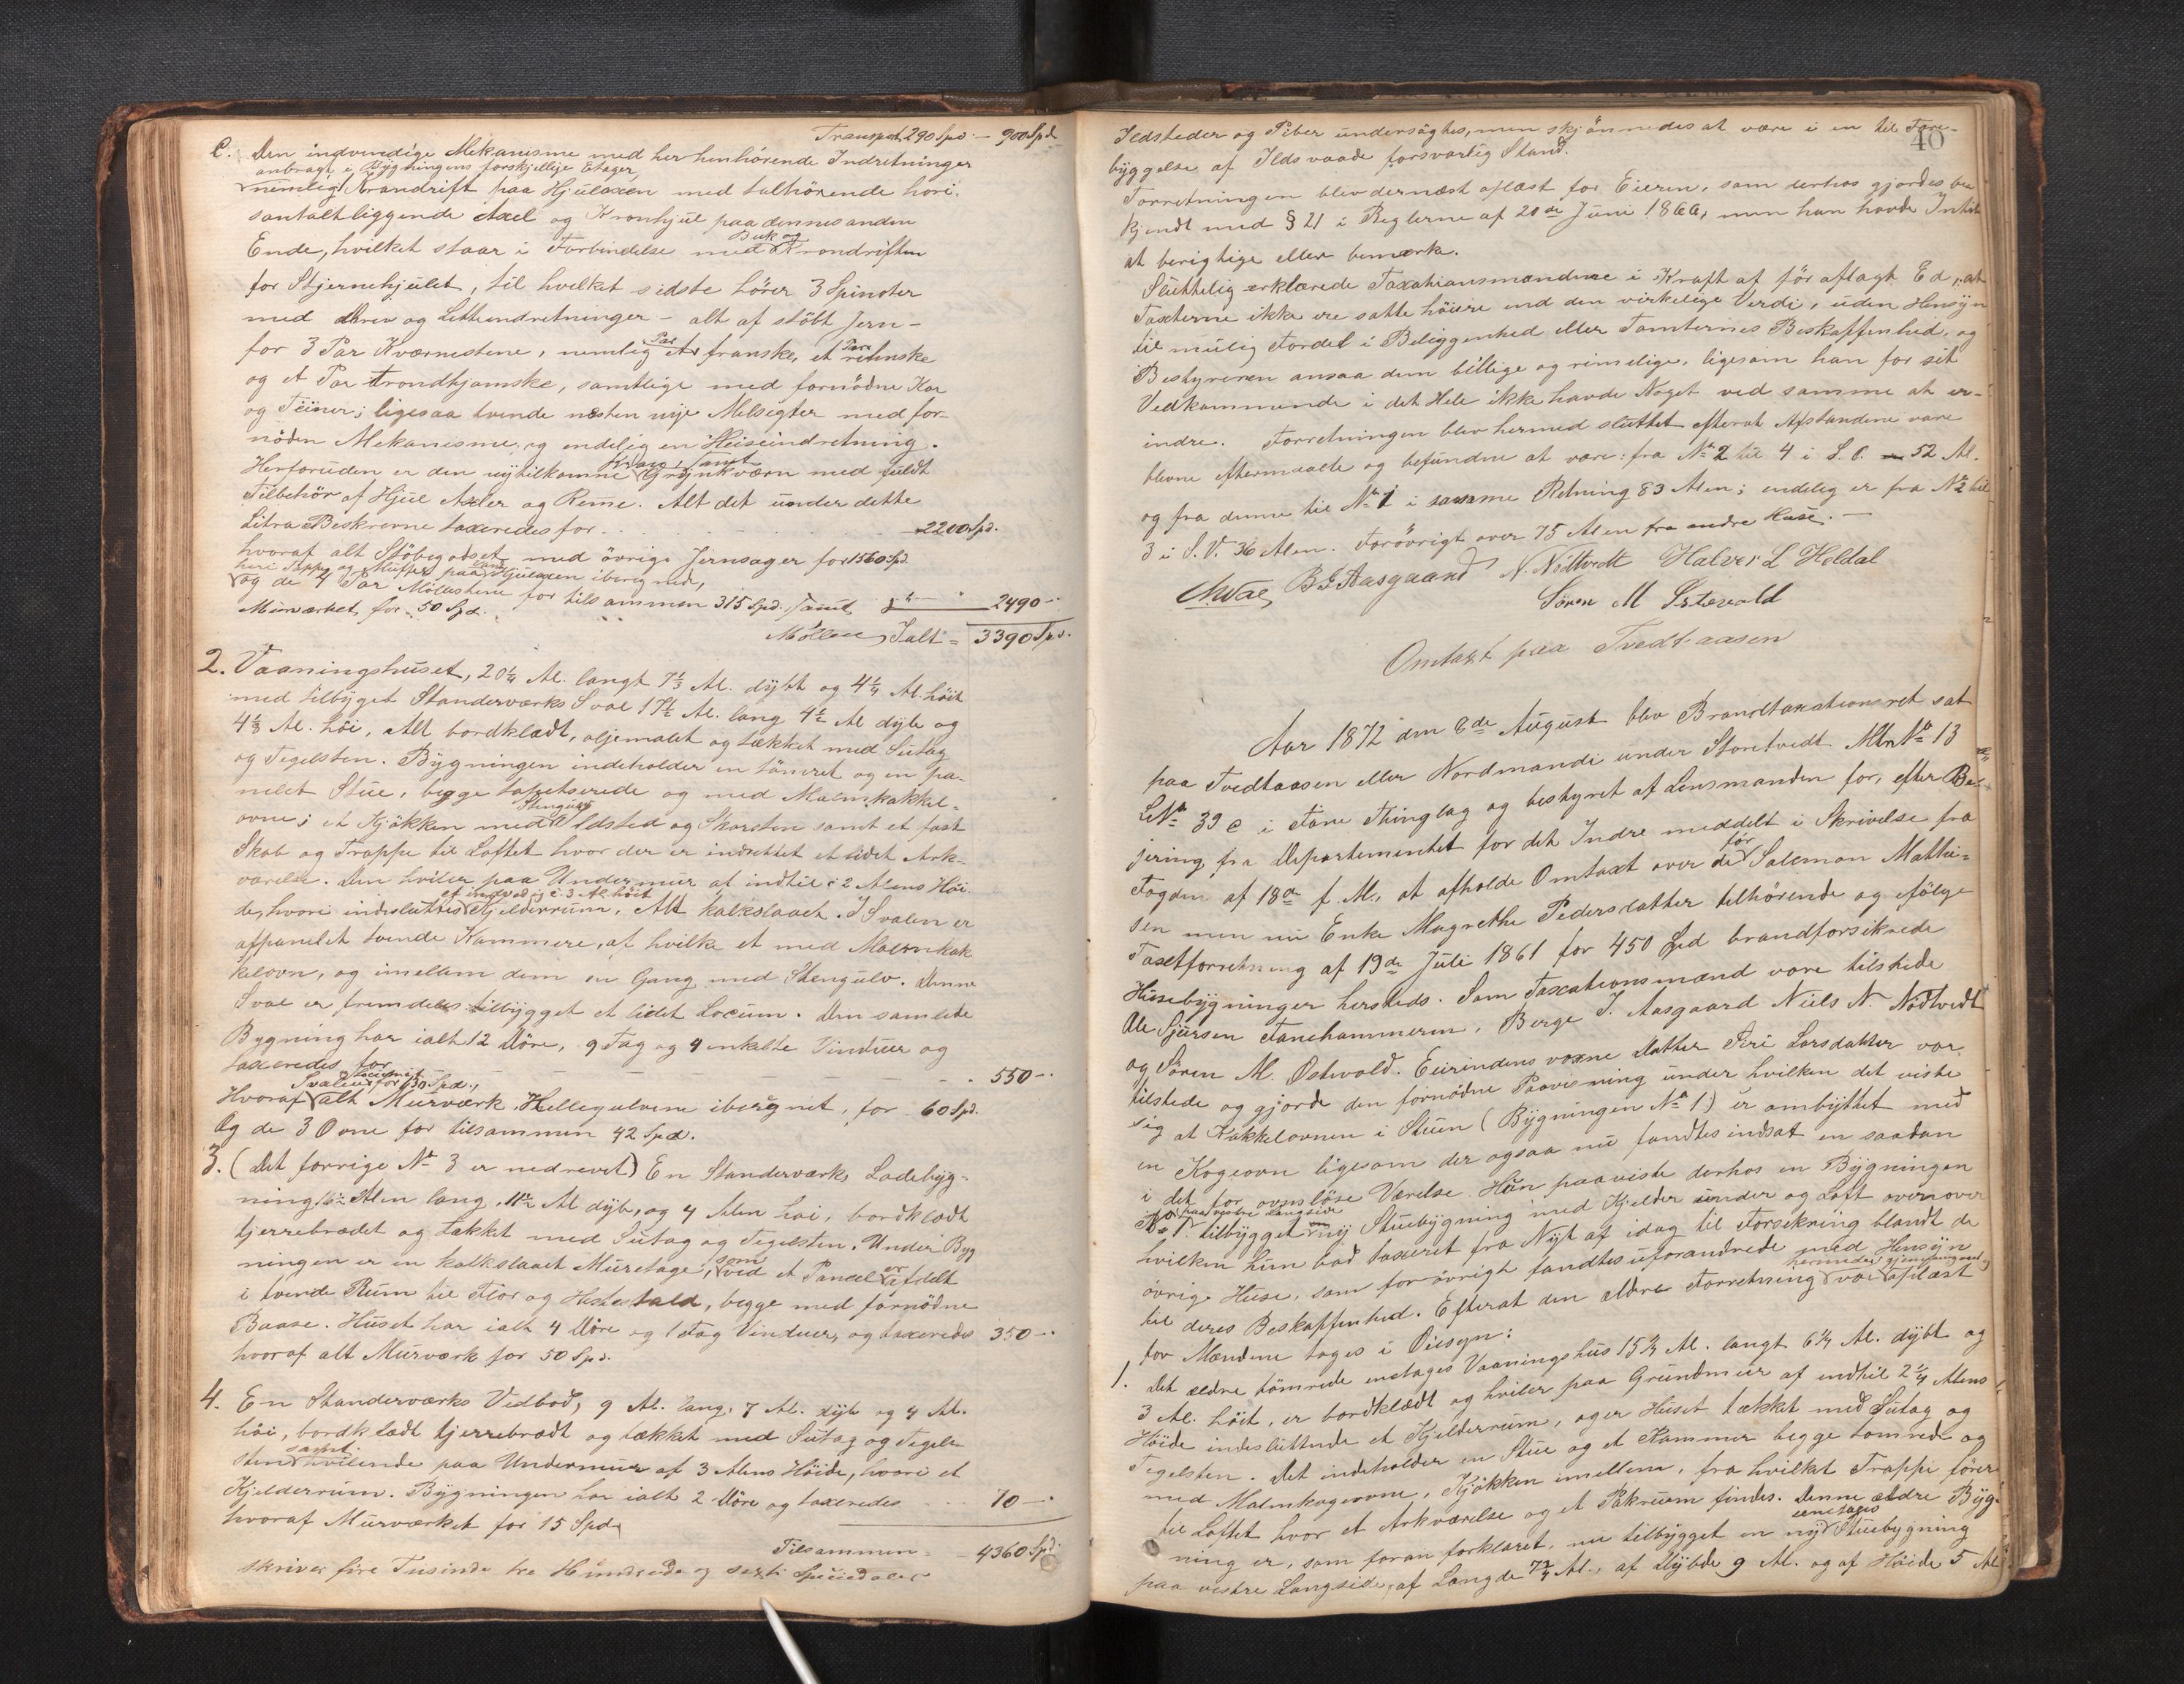 Transport 290 Spd. – 900 Spd.
C. Den indvendige Mekanisme med her henhörende Indretninger
anbragt i Bygningens forskjellige Etager,
nemlig Krandrift paa Hjulaxen med talhörende hori-
santalt liggende Axel og Kronhjul paa dennes anden
Ende, hvilket staar i Forbindelse med Buk og Krondriften
for Stjernehjulet, til hvilket sidste hörer 3 Spinoter
med Drev og Letteindretninger – alt af stöbt Jern –
for 3 Par Kværnstene, nemlig et Par franske, et Par rhinske
og et Par trondhjemske, samtlige med fornödne Kar
og Teiner; ligesaa tvende næsten nye Melsigter med for-
nöden Mekanisme, og endelig en Heiseindretning.
Herforuden er den nytilkomne Grynkværn med fuldt
Tilbehör af Hjul Axler og Reme. Alt det under dette
Litra Beskrevne taxeredes for . . . . . . 2200 Spd.
hvoraf alt Stöbegodset med övrige Jernsager for 1560 Spd.
heri Tappe og Muffer paa Vandhjulaxen iberegnede,
og de 4 Par Möllestene for tilsammen 315 Spd. samt
Murværket for 50 Spd. 2490 –
Möllen, Ialt = 3390 Spd.
2. Vaaningshuset, 20 1/4 Al. langt 7 1/3 Al. dybt og 4 1/4 Al. höit
med tilbyget Standerværks Sval 17 1/2 Al. lang 4 1/2 Al dyb og
4 1/3 Al. höi, Alt bordklædt, oljemalet og tækket med Sutag
og Tegelsten. Bygningen indeholder en tömret og en pa-
nelet Stue, begge tapetserede og med Malmkakkel-
ovne; et Kjökken med Stengulv Ildsted og Skorsten samt et fast
Skab og Trappe til Loftet hvor der er indrettet et lidet Ark-
værelse. Den hviler paa Undermur af indtil 2 Alens Höi-
de, hvori indesluttes et indvendig c. 3 Al. höit Kjelderrum, Alt kalkslaaet. I Svalen er
afpanelet tvende Kammere, af hvilke et med Malmkak-
kelovn, og imellem dem en Gang med Stengulv. Denne
Sval er fremdeles tilbygget et lidet Locum. Den samlede
Bygning har ialt 12 Döre, 9 Fag og 4 enkelte Vinduer og
taxeredes for – – – – – – 550 –
Hvoraf Svalen og Locumet for 130 Spd., alt Murværk, Hellegulvene iberegnet, for 60 Spd.
Og de 3 Ovne for tilsammen 42 Spd.
3. (Det forrige No 3 er nedrevet) En Standerværks Ladebyg-
ning 16 1/2 Alen lang, 11 1/2 Al dyb, og 4 Alen höi, bordklædt
tjerrebrædet og tækket med Sutag og Tegelsten. Under Byg-
ningen er en kalkslaaet Muretage, som ved et Paneel er afdelt
i tvende Rum til Flor og Hestestald, begge med fornödne
Baase. Huset har ialt 4 Döre og 1 Fag Vinduer, og taxeredes 350 –
hvoraf alt Murværk for 50 Spd.
4. En Standerværks Vedbod, 9 Al. lang, 7 Al. dyb og 4 Al.
höi, bordklædt tjerrebrædt og tækket med Sutag og Tegel-
sten samt hvilende paa Undermur af 3 Alens Höide, hvori et
Kjelderrum. Bygningen har ialt 2 Döre og taxeredes . . . 70 –
hvoraf Murværket for 15 Spd.
Tilsammen – 4360 Spd.
skriver fire Tusinde tre Hundrede og sexti Speciedaler
40
Ildsteder og Piber undersögtes, men skjönnedes at være i en til Fore-
byggelse af Ildsvaade forsvarlig Stand.
Forretningen blev dernæst oplæst for Eieren, som derhos gjordes be-
kjendt med § 21 i Reglerne af 20de Juni 1866, men han havde Intet
at berigtige eller bemærke.
Sluttelig erklærede Taxationsmændene i Kraft af för aflagt Ed, at
Taxterne ikke ere satte höiere end den virkelige Verdi, uden Hensyn
til mulig Fordel i Beliggenhed eller Tomternes Beskaffenhed, og
Bestyreren ansaa dem billige og rimelige, ligesom han for sit
Vedkommende i det Hele ikke havde Noget ved samme at er-
indre. Forretningen blev hermed sluttet efterat Afstandene vare
blevne eftermaalte og befundne at være: fra No 2 til 4 i S. O. 52 Al.
og fra denne til No 1 i samme Retning 83 Alen; endelig er fra No 2 til
3 i S. V. 36 Alen. Forövrigt over 75 Alen fra andre Huse. –
B. J. Aasgaard N. Nödtvedt Halver L Heldal
Sören M Östevold
Omtaxt paa Tvedtaasen
Aar 1872 den 6de August blev Brandtaxationsret sat
paa Tvedtaasen eller Nordmandi under Storetvedt Mtr No 13
LNo 39 c i Fane Thinglag og bestyret af Lensmanden for, efter Be-
jering fra Departementet for det Indre meddelt i Skrivelse fra
Fogden af 18de f. M., at afholde Omtaxt over de för Salemon Mathi-
sen men nu Enke Magrethe Pedersdatter tilhörende og ifölge
Taxtforretning af 19de Juli 1861 for 450 Spd brandforsikrede
Husebygninger hersteds. Som Taxationsmænd vare tilstede
Ole Sjursen Fanehammeren, Berge J. Aasgaard Niels N. Nödtvedt
og Sören M. Östevold. Eierindens voxne Datter Siri Larsdatter var
tilstede og gjorde den fornödne Paavisning under hvilken det viste
sig at Kakkelovnen i Stuen (Bygningen No 1) er ombyttet med
en Kogeovn ligesom der ogsaa nu fandtes indsat en saadan
i det för ovnslöse Værelse. Hun paaviste derhos en Bygningen
No 1 paa vestre Langside tilbygget en ny Stuebygning med Kjelder under og Loft ovenover
hvilken hun bad taxeret fra Nyt af idag til Forsikring blandt de
övrige Huse, som forövrigt fandtes uforandrede med Hensyn
til deres Beskaffenhed. Efterat den ældre Forretning hermed var gjennemgaaet og oplæst
for Mændene toges i Öiesyn:
1. Det ældre tömrede enetages Vaaningshus 15 1/2 Al. langt 6 1/4 Al. dybt og
3 Al. höit, er bordklædt og hviler paa Grundmur af indtil 2 1/4 Alens
Höide indesluttende et Kjelderrum, og er Huset tækket med Sutag og
Tegelsten. Det indeholder en Stue og et Kammer begge tömrede og
med Malmkogeovne, Kjökken imellem, fra hvilket Trappe förer
til Loftet hvor et Arkværelse og et Pakrum findes. Denne ældre Byg-
ning er, som foran forklaret, nu tilbygget en ny eenetages Stuebygning
paa vestre Langside, af Længde 7 3/4 Al., af Dybde 9 Al. og af Höide 5 Al